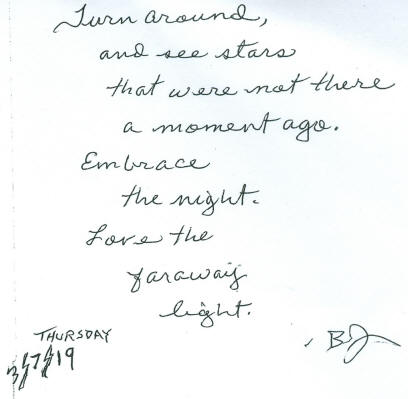 Turn around,
and see stars
that were not there
a moment ago.
Embrace
the night.
Love the
faraway
light.
THURSDAY
3/7/19
BJ